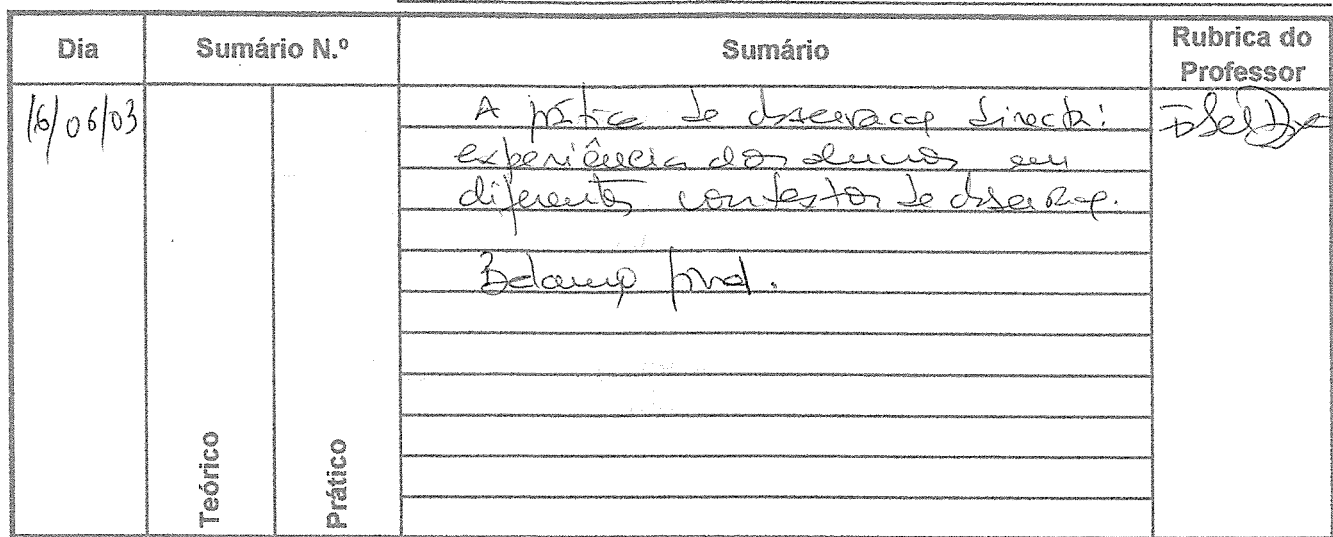 Dia Sumário N.º Sumário Rubrica do Professor
16/06/03
A prática de observação directa:
experiência dos alunos em
diferentes contextos de observação.
Balanço final.
Teórico
Prático